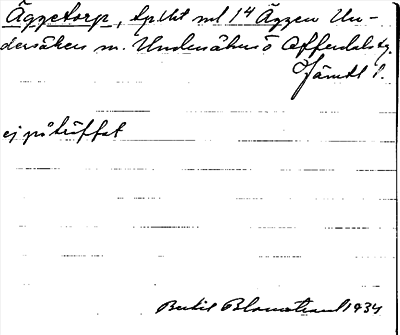 Äggetorp, tp.lht nl 14 Äggen Un-
dersåkers sn. Undersåkers o Offerdals tg.
Jämtl l.
ej påträffat
Bertil Blomstrand 1934